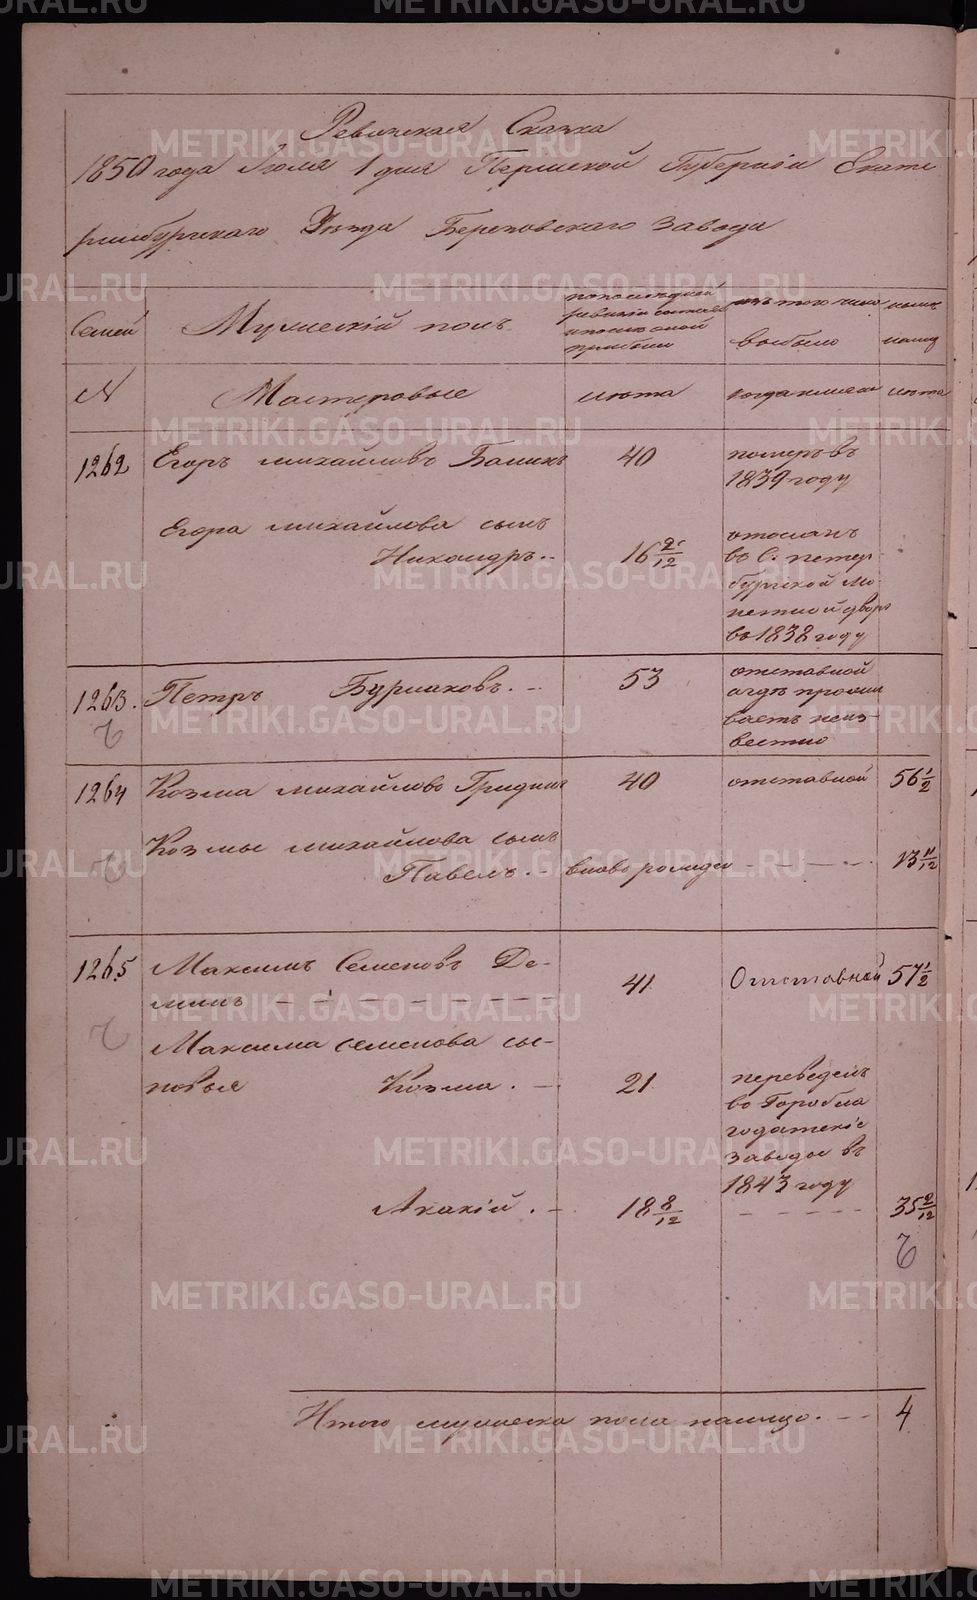 Ревизская Сказка
1850 года Июля 1 дня Пермской Губернiи Екате
ринбургскаго Уезда Березовскаго Завода
Семей
Мужескiй полъ
по последней ревизiи состояло и после оной прибыло
изъ того числа выбыло
ныне налицо
№
Мастеровые
лета
когда именно
лета
1262
Егоръ Михайловъ Баминъ
40
померъ въ
1839 году
Егора Михайлова сынъ
Никандръ
16 2/12
отосланъ
въ С. петер
бургской Мо
нетной дворъ
въ 1838 году
1263.
Петръ Бурмаковъ.
53
отставной
а где прожи
ваетъ неиз-
вестно
1264
Козма Михайловъ Гридинъ
40
отставной
56 1/2
Козмы Михайлова сынъ
Павелъ.
вновь рожден
13 11/12
1265
Максимъ Семеновъ Де-
минъ
41
Отставной
57 1/2
Максима Семенова сы-
новья Козма.
21
переведенъ
во Гороблa
годатскiе
заводы въ
1843 году
Акакiй.
18 8/12
35 2/12
Итого мужеска пола налицо.
4
METRIKI.GASO-URAL.RU